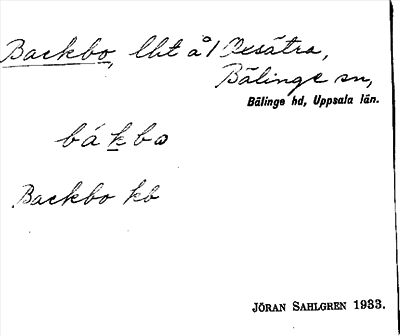 Backbo, lht å 1 Oxsätra,
Bälinge sn,
Bälinge hd, Uppsala län.
bákbω
Backbo kb
JÖRAN SAHLGREN 1933.